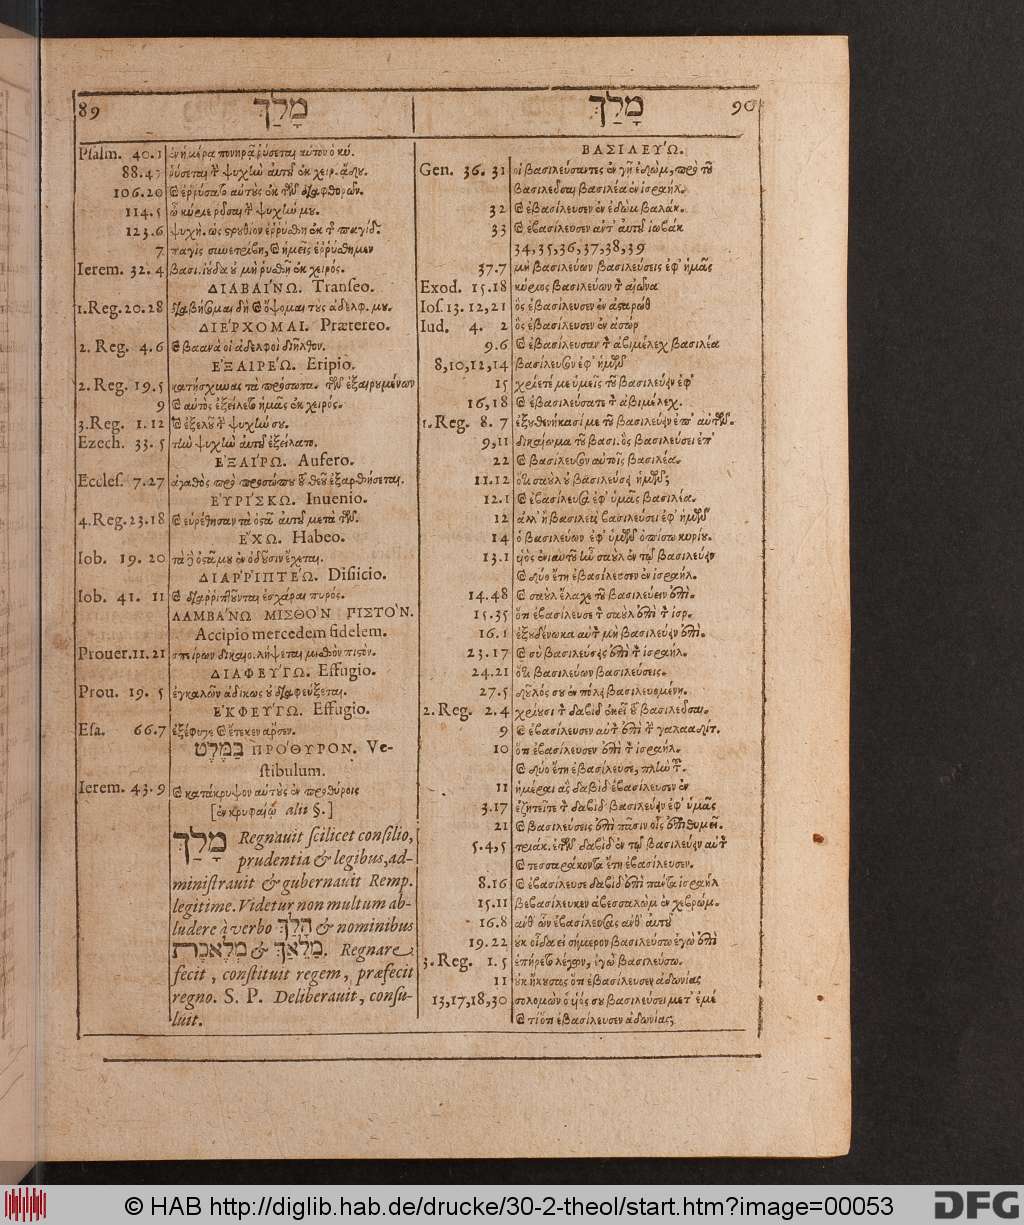 89 מָלַךְ
Psalm. 40.1 ἐν ἡμέρα πονηρᾷ ῥύσεται αὐτὸν ὁ κύ.
88.47 ῥύσεται τὴν ψυχὴν αὐτοῦ ἐκ χειρ. ᾅδου.
106.20 καὶ ἐῤῥύσατο αὐτοὺς ἐκ τῶν διαφθορῶν.
114.5 ὦ κύριε ῥῦσαι τὴν ψυχήν μου.
123.6 ψυχὴ. ὡς στρουθίον ἐῤῥύσθη ἐκ τῆς παγίδ.
7 παγὶς συνετρίβη, καὶ ἡμεῖς ἐῤῥύσθημεν
Ierem. 32.4 βασι. ἰούδα οὐ μὴ ῥυσθῇ ἐκ χειρός.
ΔΙΑΒΑΊΝΩ. Transeo.
1.Reg.20.28 διαβήσομαι δὴ καὶ ὄψομαι τοὺς ἀδελφ. μου.
ΔΙΈΡΧΟΜΑΙ. Prætereo.
2. Reg. 4.6 καὶ βαανὰ οἱ ἀδελφοὶ διῆλθον.
ἘΞΑΙΡΕΏ. Eripio.
2.Reg. 19.5 κατήσχυνας τὰ πρόσωπα. τῶν ἐξαιρουμένων
9 καὶ αὐτὸς ἐξείλετο ἡμᾶς ἐκ χειρός.
3.Reg. 1.12 καὶ ἐξελοῦ τὴν ψυχήν σου.
Ezech. 33.5 τὴν ψυχὴν αὐτοῦ ἐξείλατο.
ἘΞΑΊΡΩ. Aufero.
Ecclес. 7.27 ἀγαθὸς πρὸ προσώπου τοῦ θεοῦ ἐξαρθήσεται.
ἙΥΡΊΣΚΩ. Inuenio.
4.Reg.23.18 καὶ εὑρέθησαν τὰ ὀστᾶ αὐτοῦ μετὰ τῶν.
ἜΧΩ. Habeo.
Iob. 19. 20 τὰ δὲ ὀστᾶ μου ἐν ὀδοῦσιν ἔχεται.
ΔΙΑῤῬΙΠΤΈΩ. Disiicio.
Iob. 41. 11 καὶ διαῤῥιπτοῦνται ἐσχάραι πυρός.
ΛΑΜΒΆΝΩ ΜΙΣΘῸΝ ΠΙΣΤΌΝ.
Accipio mercedem fidelem.
Prouer.11.21 σπείρων δικαιο. λήψεται μισθὸν πιστόν.
ΔΙΑΦΕΎΓΩ. Effugio.
Prou. 19. 5 ἐγκαλῶν ἀδίκως οὐ διαφεύξεται.
ἘΚΦΕΎΓΩ. Effugio.
Esa. 66.7 ἐξέφυγε καὶ ἔτεκεν ἄρσεν.
בַּמֶּלֶט ΠΡΌΘΥΡΟΝ. Ve-
stibulum.
Ierem. 43.9 καὶ κατάκρυψον αὐτοὺς ἐν προθύροις
[ἐν κρυφαίῳ alii §.]
מָלַךְ Regnauit scilicet consilio,
prudentia & legibus, ad-
ministrauit & gubernauit Remp.
legitime. Videtur non multum ab-
ludere á verbo הָלַךְ & nominibus
מַלְאָךְ & מְלֶאכֶת. Regnare
fecit, constituit regem, præfecit
regno. S. P. Deliberauit, consu-
luit.
מָלַךְ 90
ΒΑΣΙΛΕΎΩ.
Gen. 36. 31 οἱ βασιλεύσαντες ἐν γῇ ἐδώμ, πρὸ τοῦ
βασιλεῦσαι βασιλέα ἐν ἰσραήλ.
32 καὶ ἐβασίλευσεν ἐν ἐδὼμ βαλάκ.
33 καὶ ἐβασίλευσεν ἀντ᾽ αὐτοῦ ἰωβάκ
34,35,36,37,38,39
37.7 μὴ βασιλεύων βασιλεύσεις ἐφ᾽ ἡμᾶς
Exod. 15.18 κύριος βασιλεύων τὸν αἰῶνα
Ios. 13.12,21 ὃς ἐβασίλευσεν ἐν ἀσταρὼθ
Iud. 4. 2 ὃς ἐβασίλευσεν ἐν ἀσώρ
9.6 καὶ ἐβασίλευσαν τὸν ἀβιμέλεχ βασιλέα
8,10,12,14 βασίλευσον ἐφ᾽ ἡμῶν
15 χρίετέ με ὑμεῖς τοῦ βασιλεύειν ἐφ᾽
16,18 καὶ ἐβασιλεύσατε τὸν ἀβιμέλεχ.
1.Reg. 8. 7 ἐξουθενήκασί με τοῦ βασιλεύειν ἐπ᾽ αὐτῶν.
9,11 δικαίωμα τοῦ βασι. ὃς βασιλεύσει ἐπ᾽
22 καὶ βασίλευσον αὐτοῖς βασιλέα.
11.12 ὅτι σαοὺλ οὐ βασιλεύσει ἡμῶν;
12.1 καὶ ἐβασίλευσα ἐφ᾽ ὑμᾶς βασιλέα.
12 ἀλλ᾽ ἢ βασιλεὺς βασιλεύσει ἐφ᾽ ἡμῶν
14 ὁ βασιλεύων ἐφ᾽ ὑμῶν ὀπίσω κυρίου.
13.1 υἱὸς ἐνιαυτοῦ ἦν σαοὺλ ἐν τῷ βασιλεύειν
καὶ δύο ἔτη ἐβασίλευσεν ἐν ἰσραήλ.
14.48 καὶ σαοὺλ ἔλαχε τοῦ βασιλεύειν ἐπὶ.
15.35 ὅτι ἐβασίλευσε τὸν σαοὺλ ἐπὶ τὸν ἰσρ.
16.1 ἐξουδένωκα αὐτὸν μὴ βασιλεύειν ἐπὶ.
23.17 καὶ σὺ βασιλεύσεις ἐπὶ τὸν ἰσραήλ.
24.21 ὅτι βασιλεύων βασιλεύσεις.
27.5 δοῦλός σου ἐν πόλει βασιλευομένῃ.
2. Reg. 2.4 χρίουσι τὸν δαβὶδ ἐκεῖ τοῦ βασιλεῦσαι.
9 καὶ ἐβασίλευσεν αὐτὸν ἐπὶ τὴν γαλααδίτ.
10 ὅτι ἐβασίλευσεν ἐπὶ τὸν ἰσραήλ.
καὶ δύο ἔτη ἐβασίλευσε, πλὴν τῆς.
11 ἡμέραι ἃς δαβὶδ ἐβασίλευσεν ἐν
3.17 ἐζητεῖτε τὸν δαβὶδ βασιλεύειν ἐφ᾽ ὑμᾶς
21 καὶ βασιλεύσεις ἐπὶ πᾶσιν οἷς ἐπιθυμεῖ.
5.4,5 τριάκ. ἐτῶν δαβὶδ ἐν τῷ βασιλεύειν αὐτὸν
καὶ τεσσαράκοντα ἔτη ἐβασίλευσεν.
8.16 καὶ ἐβασίλευσε δαβὶδ ἐπὶ πάντα ἰσραὴλ
15.11 βεβασίλευκεν ἀβεσσαλὼμ ἐν χεβρώμ.
16.8 ἀνθ᾽ ὧν ἐβασίλευσας ἀνθ᾽ αὐτοῦ
19.22 οὐκ οἶδα εἰ σήμερον βασιλεύσω ἐγὼ ἐπὶ
3. Reg. 1.5 ἐπῄρετο λέγων, ἐγὼ βασιλεύσω.
11 οὐκ ἤκουσας ὅτι ἐβασίλευσεν ἀδωνίας
13,17,18,30 σολομὼν ὁ υἱός σου βασιλεύσει μετ᾽ ἐμέ
καὶ τί ὅτι ἐβασίλευσεν ἀδωνίας;
© HAB http://diglib.hab.de/drucke/30-2-theol/start.htm?image=00053
DFG